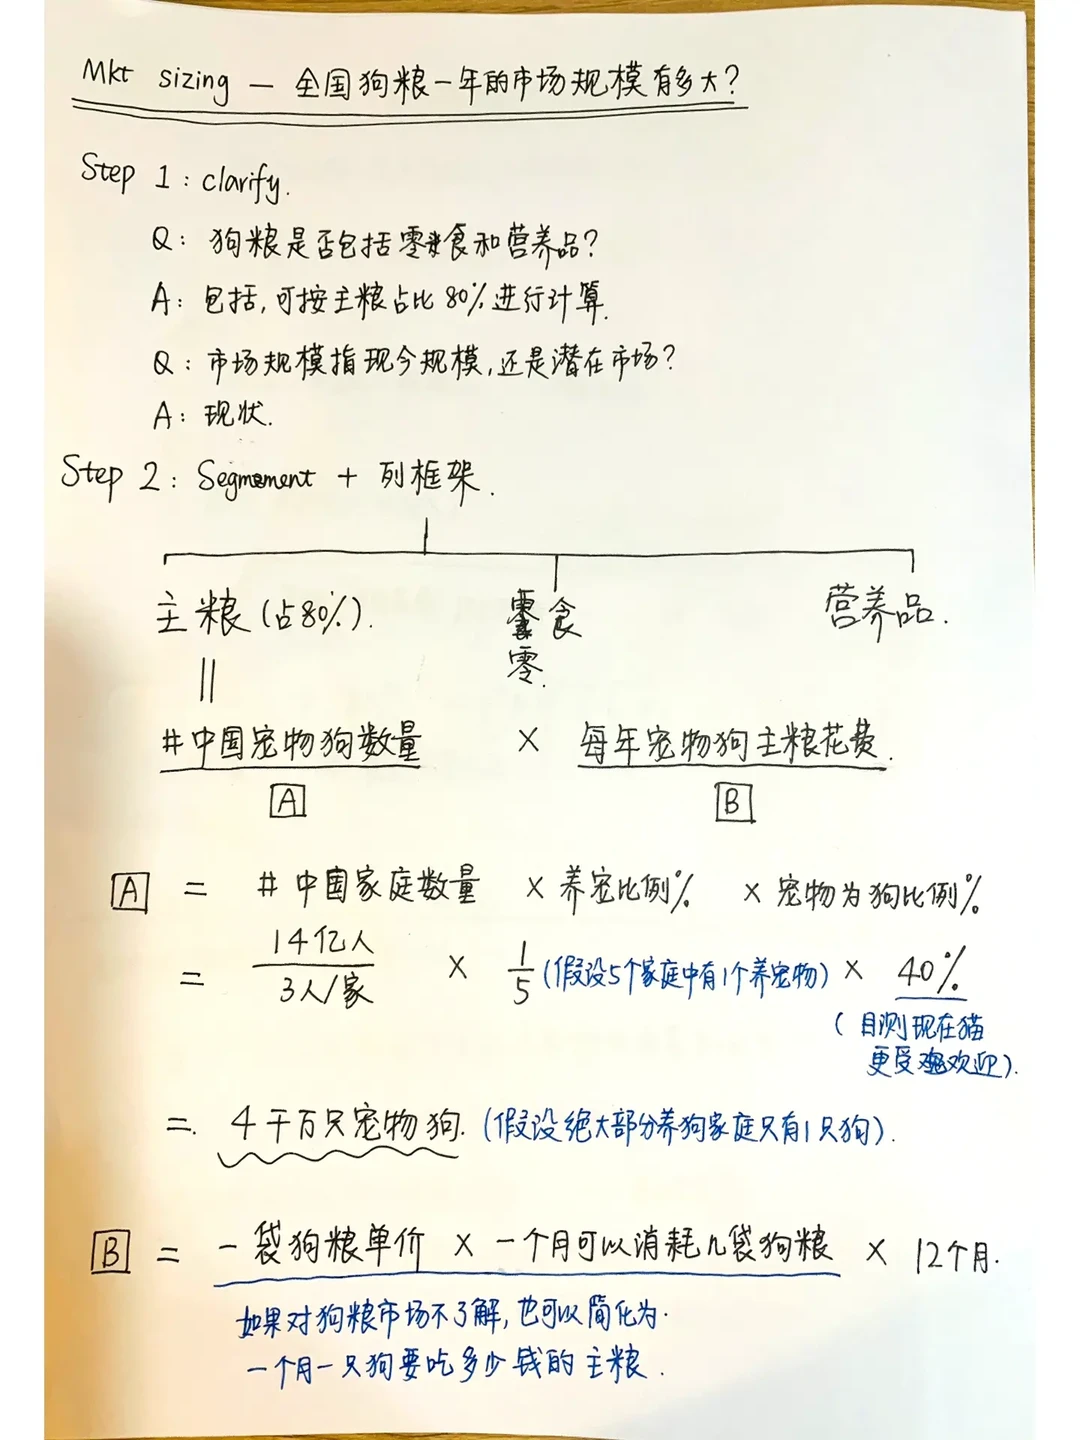 Mkt sizing — 全国狗粮一年的市场规模有多大?
Step 1: clarify.
Q: 狗粮是否包括零食和营养品?
A: 包括,可按主粮占比80%进行计算.
Q: 市场规模指现今规模,还是潜在市场?
A: 现状.
Step 2: Segment + 列框架.
主粮(占80%). 零食 营养品.
零.
#中国宠物狗数量 × 每年宠物狗主粮花费.
A B
A = #中国家庭数量 × 养宠比例% × 宠物为狗比例%
= 14亿人 / 3人/家 × 1/5 (假设5个家庭中有1个养宠物) × 40%
(目测现在猫
更受欢迎).
=. 4千万只宠物狗. (假设绝大部分养狗家庭只有1只狗).
B = 一袋狗粮单价 × 一个月可以消耗几袋狗粮 × 12个月.
如果对狗粮市场不了解,也可以简化为.
一个月一只狗要吃多少钱的主粮.